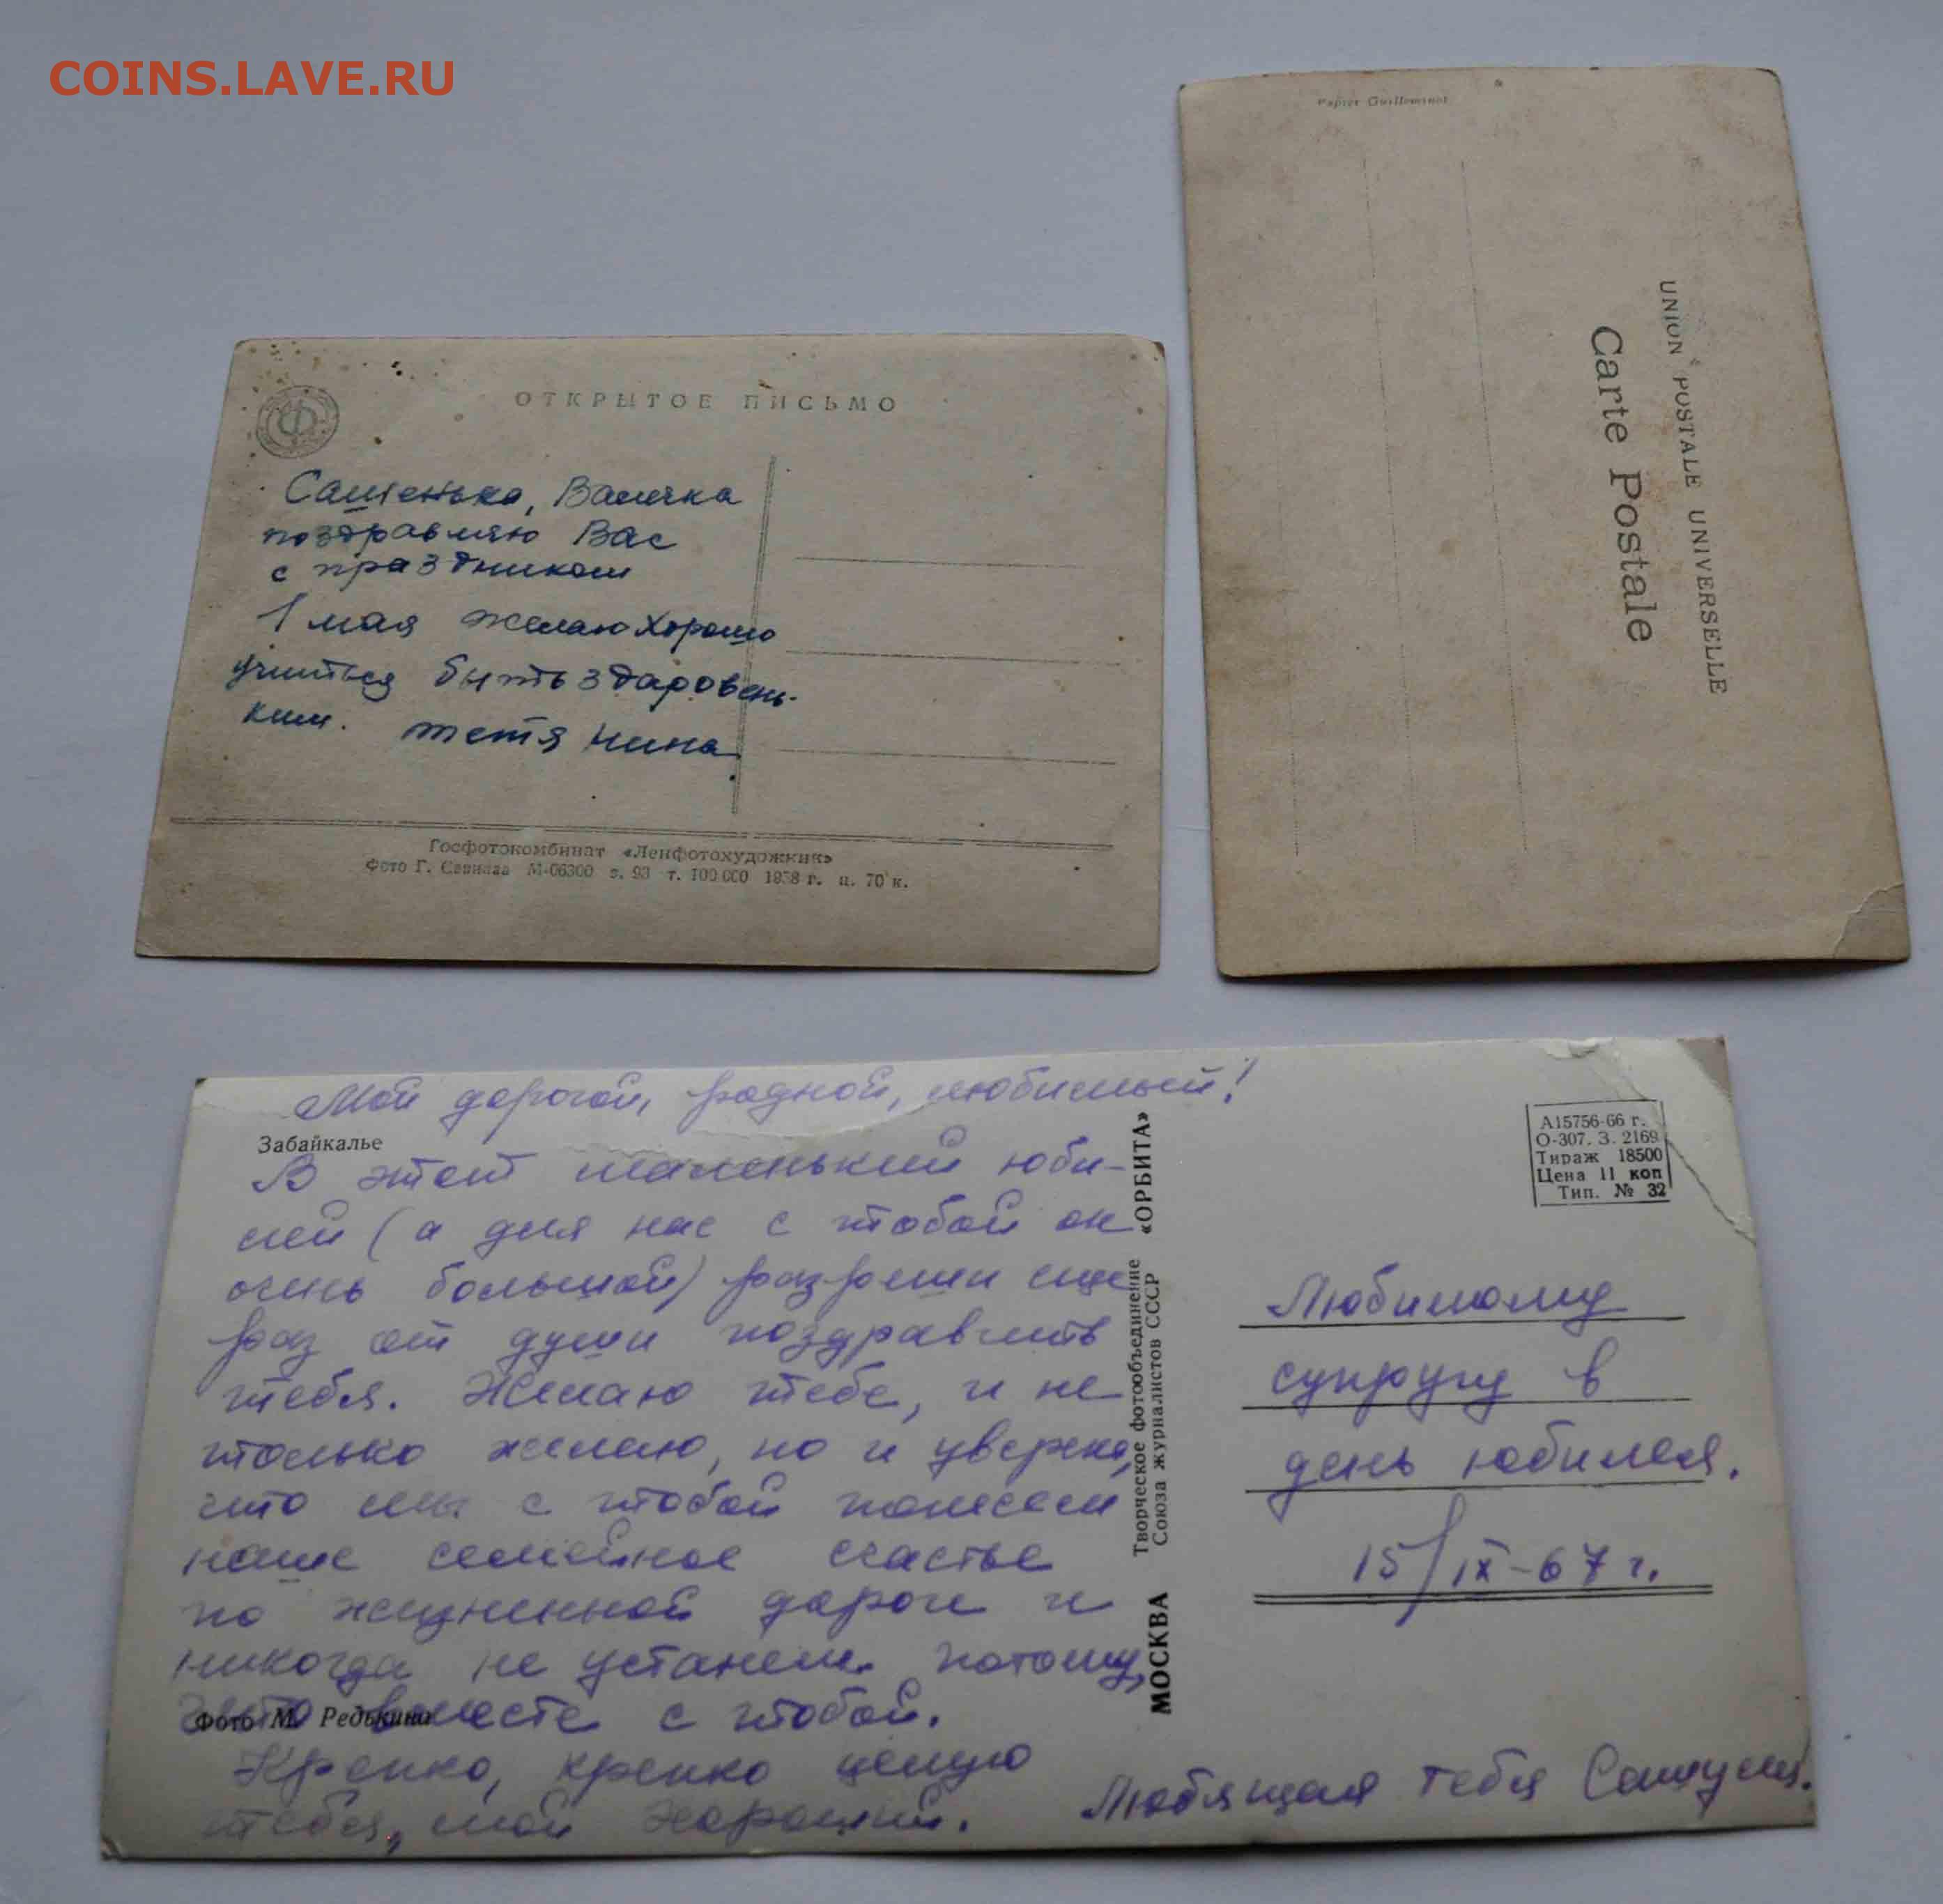 COINS.LAVE.RU
Papier Guilleminot
UNION POSTALE UNIVERSELLE
Carte Postale
ОТКРЫТОЕ ПИСЬМО
Ф
Сашенька,
поздравляю Вас
с праздником
1 мая желаю хорошо
учиться быть здаровень-
ким. тетя Нина
Госфотокомбинат «Ленфотохудожник»
Фото Г. Савина М-06300 з. 93 т. 100 000 1958 г. ц. 70 к.
Мой дорогой, родной, любимый!
Забайкалье
В этот маленький юби-
лей (а для нас с тобой он
очень большой) разреши еще
раз от души поздравить
тебя. Желаю тебе, и не
только желаю, но и уверена,
что мы с тобой понесем
наше семейное счастье
по жизненной дороге и
никогда не устанем потому,
что вместе с тобой.
Фото М. Редькина
Крепко, крепко целую
тебя, мой хороший.
МОСКВА «ОРБИТА»
Творческое фотообъединение
Союза журналистов СССР
А15756-66 г.
О-307. З. 2169
Тираж 18500
Цена 11 коп
Тип. № 32
Любимому
супругу в
день юбилея.
15/IX-67 г.
Любящая тебя